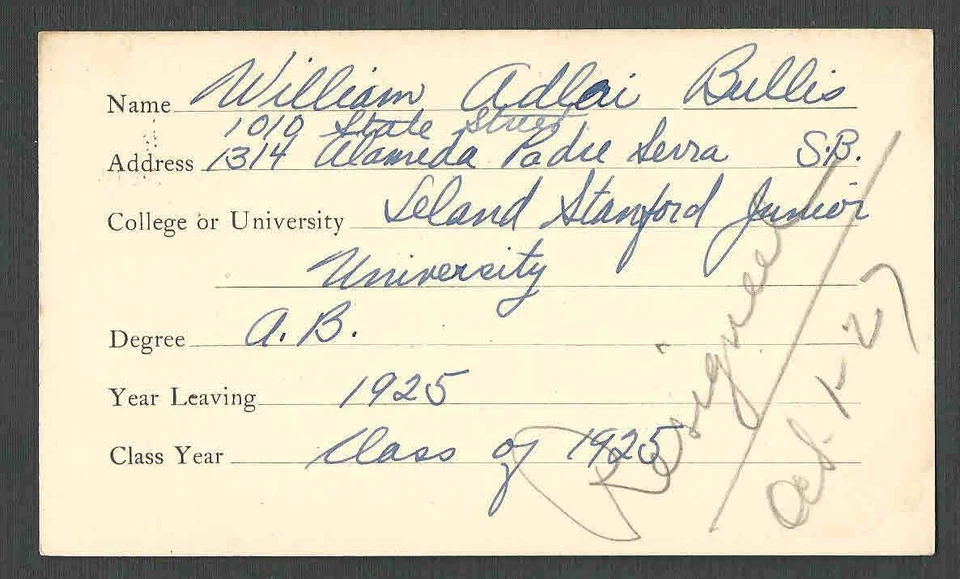 Name William Adlai Bullis
1010 State Street
Address 1314 Alameda Padre Serra S.B.
College or University Leland Stanford Junior
University
Degree A.B.
Year Leaving 1925
Class Year Class of 1925
Resigned
Oct. 1-27